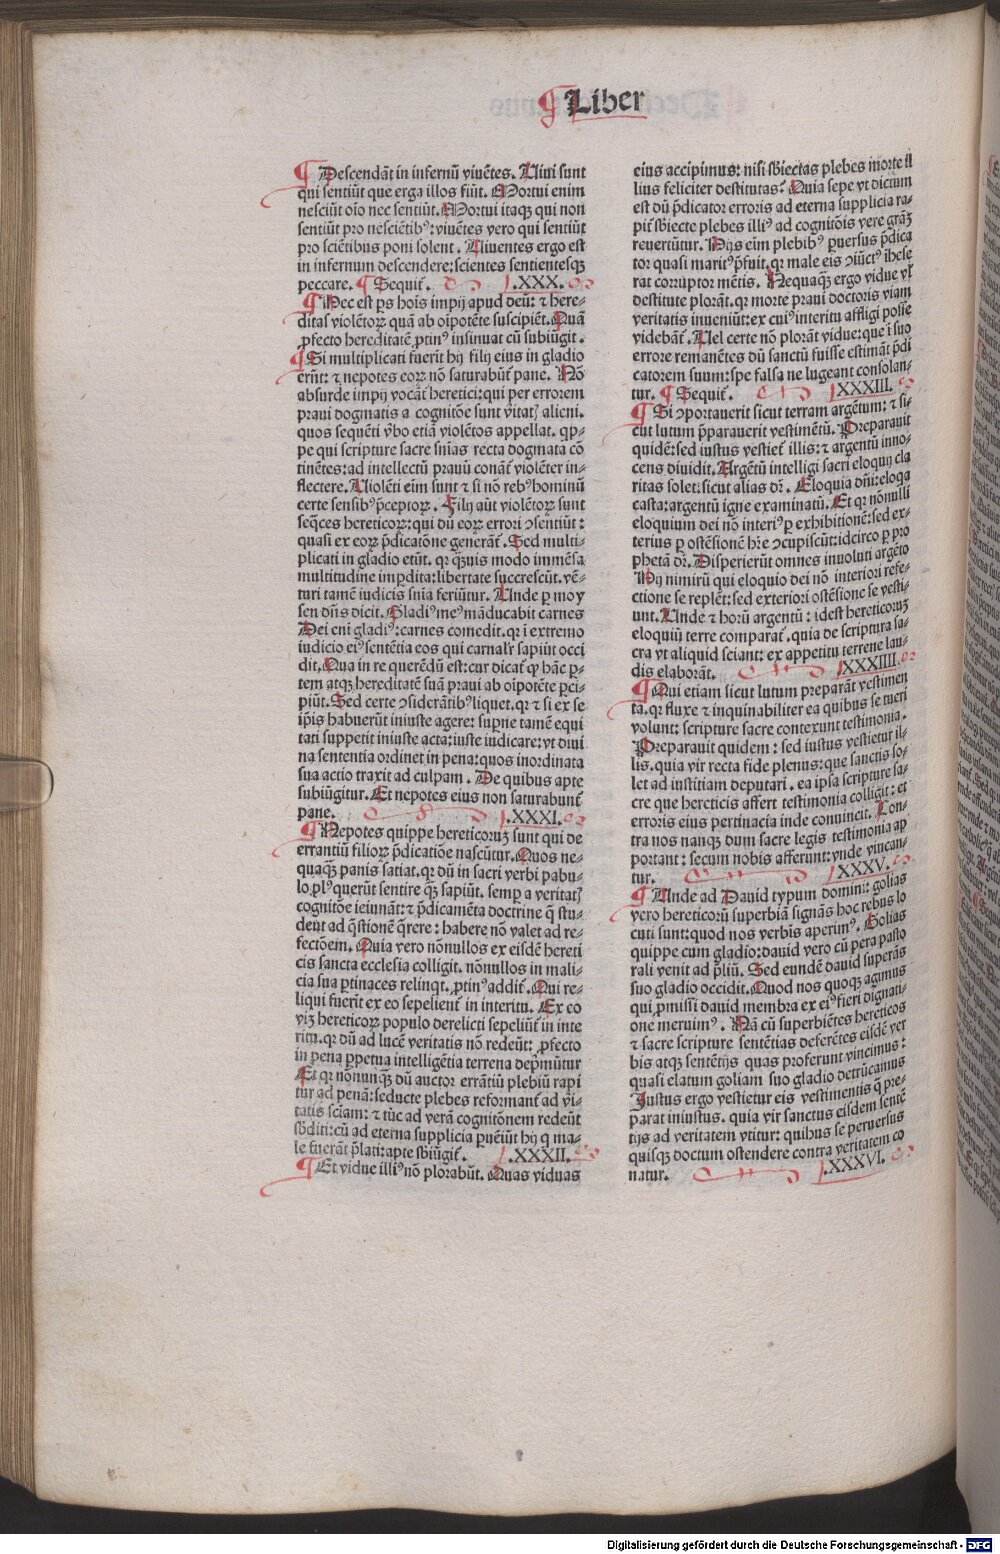 ¶ Liber
¶ Descendāt in infernū viuētes. Uiui sunt
qui sentiūt que erga illos fiūt. Mortui enim
nesciūt oīo nec sentiūt. Mortui itaqꝫ qui non
sentiūt pro nesciētibꝰ: viuētes vero qui sentiūt
pro sciētibus poni solent. Uiuentes ergo est
in infernum descendere: scientes sentientesqꝫ
peccare. ¶ Sequit̄. .XXX.
¶ Hec est ps hoīs impij apud deū: ⁊ here⸗
ditas violētoꝝ quā ab oīpotēte suscipiēt. Quā
ꝓfecto hereditatē ꝓtinꝰ insinuat cū subiūgit.
¶ Si multiplicati fuerit hij filij eius in gladio
erūt: ⁊ nepotes eoꝝ nō saturabūt̄ pane. Nō
absurde impij vocāt̄ heretici: qui per errorem
praui dogmatis a cognitōe sunt v̄itat̄ alieni.
quos sequēti v̄bo etiā violētos appellat. qꝛ⸗
pe qui scripture sacre snīas recta dogmata cō
tinētes: ad intellectū prauū conāt̄ violēter in⸗
flectere. Uiolēti eim sunt ⁊ si nō rebꝰ hominū
certe sensibꝰ p̄ceptoꝝ. Filij aūt violētoꝝ sunt
seq̄ces hereticoꝝ: qui dū eoꝝ errori ↄsentiūt:
quasi ex eoꝝ p̄dicatōne generāt̄. Sed multi⸗
plicati in gladio erūt. qꝛ q̄uis modo immēsa
multitudine imp̄dita: libertate succrescūt. vē⸗
turi tamē iudicis snīa feriūtur. Unde ꝑ moy
sen dn̄s dicit. Gladiꝰ meꝰ māducabit carnes
Dei eni gladiꝰ: carnes comedit. qꝛ ī extremo
iudicio eiꝰ sentētia eos qui carnalr̄ sapiūt occi
dit. Qua in re querēdū est: cur dicat̄ ꝙ hāc ꝑ⸗
tem atqꝫ hereditatē suā praui ab oīpotēte ꝑci⸗
piūt. Sed certe ↄsiderātibꝰ liquet. qꝛ ⁊ si ex se
ip̄is habuerūt iniuste agere: supne tamē equi
tati suppetit iniuste acta: iuste iudicare: vt diui
na sententia ordinet in pena: quos inordinata
sua actio traxit ad culpam. De quibus apte
subiūgitur. Et nepotes eius non saturabunt̄
pane. .XXXI.
¶ Nepotes quippe hereticoruꝫ sunt qui de
errantiū filioꝝ p̄dicatiōe nascūtur. Quos ne⸗
quaqꝫ panis satiat. qꝛ dū in sacri verbi pabu⸗
lo plꝰ querūt sentire qꝫ sapiūt. semp a veritat̄
cognitōe ieiunāt: ⁊ p̄dicamēta doctrine q̄ stu⸗
dent ad q̄stionē q̄rere: habere nō valet ad re⸗
fectōem. Quia vero nōnullos ex eisdē hereti
cis sancta ecclesia colligit. nōnullos in mali⸗
cia sua ꝑtinaces relinqt. ꝓtinꝰ addit̄. Qui re⸗
liqui fuerīt ex eo sepelient̄ in interitu. Ex eo
viꝫ hereticoꝝ populo derelicti sepeliūt̄ in inte
ritu. qꝛ dū ad lucē veritatis nō redeūt: ꝓfecto
in pena ꝑpetua intelligētia terrena dep̄mūtur
Et qꝛ nōnunqꝫ dū auctor errātiū plebiū rapi
tur ad penā: seducte plebes reformant̄ ad v̄i⸗
tatis sciam: ⁊ tūc ad verā cognitōnem redeūt
sb̄diti: cū ad eterna supplicia ꝑueiūt hij q ma⸗
le fuerāt p̄lati: apte sbiūgit̄. .XXXII.
¶ Et vidue illiꝰ nō plorabūt. Quas viduas
eius accipimus: nisi sbiectas plebes morte il
lius feliciter destitutas: Quia sepe vt dictum
est dū p̄dicator erroris ad eterna supplicia ra⸗
pit̄ sbiecte plebes illiꝰ ad cognitōis vere grāꝫ
reuertūtur. Hijs eim plebibꝰ ꝑuersus p̄dica
tor quasi maritꝰ p̄fuit. qꝛ male eis ↄiūctꝰ ihese
rat corruptor mētis. Nequaqꝫ ergo vidue vl̄
destitute plorāt. qꝛ morte praui doctoris viam
veritatis inueniūt: ex cuiꝰ interitu affligi posse
videbāt̄. Uel certe nō plorāt vidue: que ī suo
errore remanētes dū sanctū fuisse estimāt p̄di
catorem suum: spe falsa ne lugeant consolan⸗
tur. ¶ Sequit̄. .XXXIII.
¶ Si ↄportauerit sicut terram argētum: ⁊ si⸗
cut lutum p̄parauerit vestimētū. Preparauit
quidē: sed iustus vestiet̄ illis: ⁊ argentū inno⸗
cens diuidit. Argētū intelligi sacri eloquij cla
ritas solet: sicut alias dr̄. Eloquia dn̄i: eloqa
casta: argentū igne examinatū. Et qꝛ nōnulli
eloquium dei nō interiꝰ ꝑ exhibitionē: sed ex⸗
terius ꝑ ostēsionē hr̄e ↄcupiscūt: idcirco ꝑ pro
phetā dr̄. Disperierūt omnes inuoluti argēto
Hij nimirū qui eloquio dei nō interiori refe⸗
ctione se replēt: sed exteriori ostēsione se vesti⸗
unt. Unde ⁊ horū argentū: idest hereticoruꝫ
eloquiū terre comparat̄. quia de scriptura sa⸗
cra vt aliquid sciant: ex appetitu terrene lau⸗
dis elaborāt. .XXXIIII.
¶ Qui etiam sicut lutum preparāt vestimen
ta. qꝛ fluxe ⁊ inquinabiliter ea quibus se tueri
volunt: scripture sacre contexunt testimonia.
Preparauit quidem: sed iustus vestietur il⸗
lis. quia vir recta fide plenus: que sanctis so⸗
let ad iustitiam deputari. ea ipsa scripture sa⸗
cre que hereticis affert testimonia colligit: et
erroris eius pertinacia inde conuincit. Con⸗
tra nos nanqꝫ dum sacre legis testimonia ap
portant: secum nobis afferunt: vnde vincan⸗
tur. .XXXV.
¶ Unde ad Dauid typum domini: golias
vero hereticorū superbiā signās hoc rebus lo
cuti sunt: quod nos verbis aperimꝰ. Golias
quippe cum gladio: dauid vero cū pera pasto
rali venit ad p̄liū. Sed eundē dauid superās
suo gladio occidit. Quod nos quoqꝫ agimus
qui ꝓmissi dauid membra ex eiꝰ fieri dignati⸗
one meruimꝰ. Nā cū superbiētes hereticos
⁊ sacre scripture sentētias deferētes eisdē ver
bis atqꝫ sentētijs quas proferunt vincimus:
quasi elatum goliam suo gladio detrūcamus
Justus ergo vestietur eis vestimentis q̄ pre⸗
parat iniustus. quia vir sanctus eisdem sentē
tijs ad veritatem vtitur: quibus se peruersus
quisqꝫ doctum ostendere contra veritatem co
natur. .XXXVI.
Digitalisierung gefördert durch die Deutsche Forschungsgemeinschaft - DFG